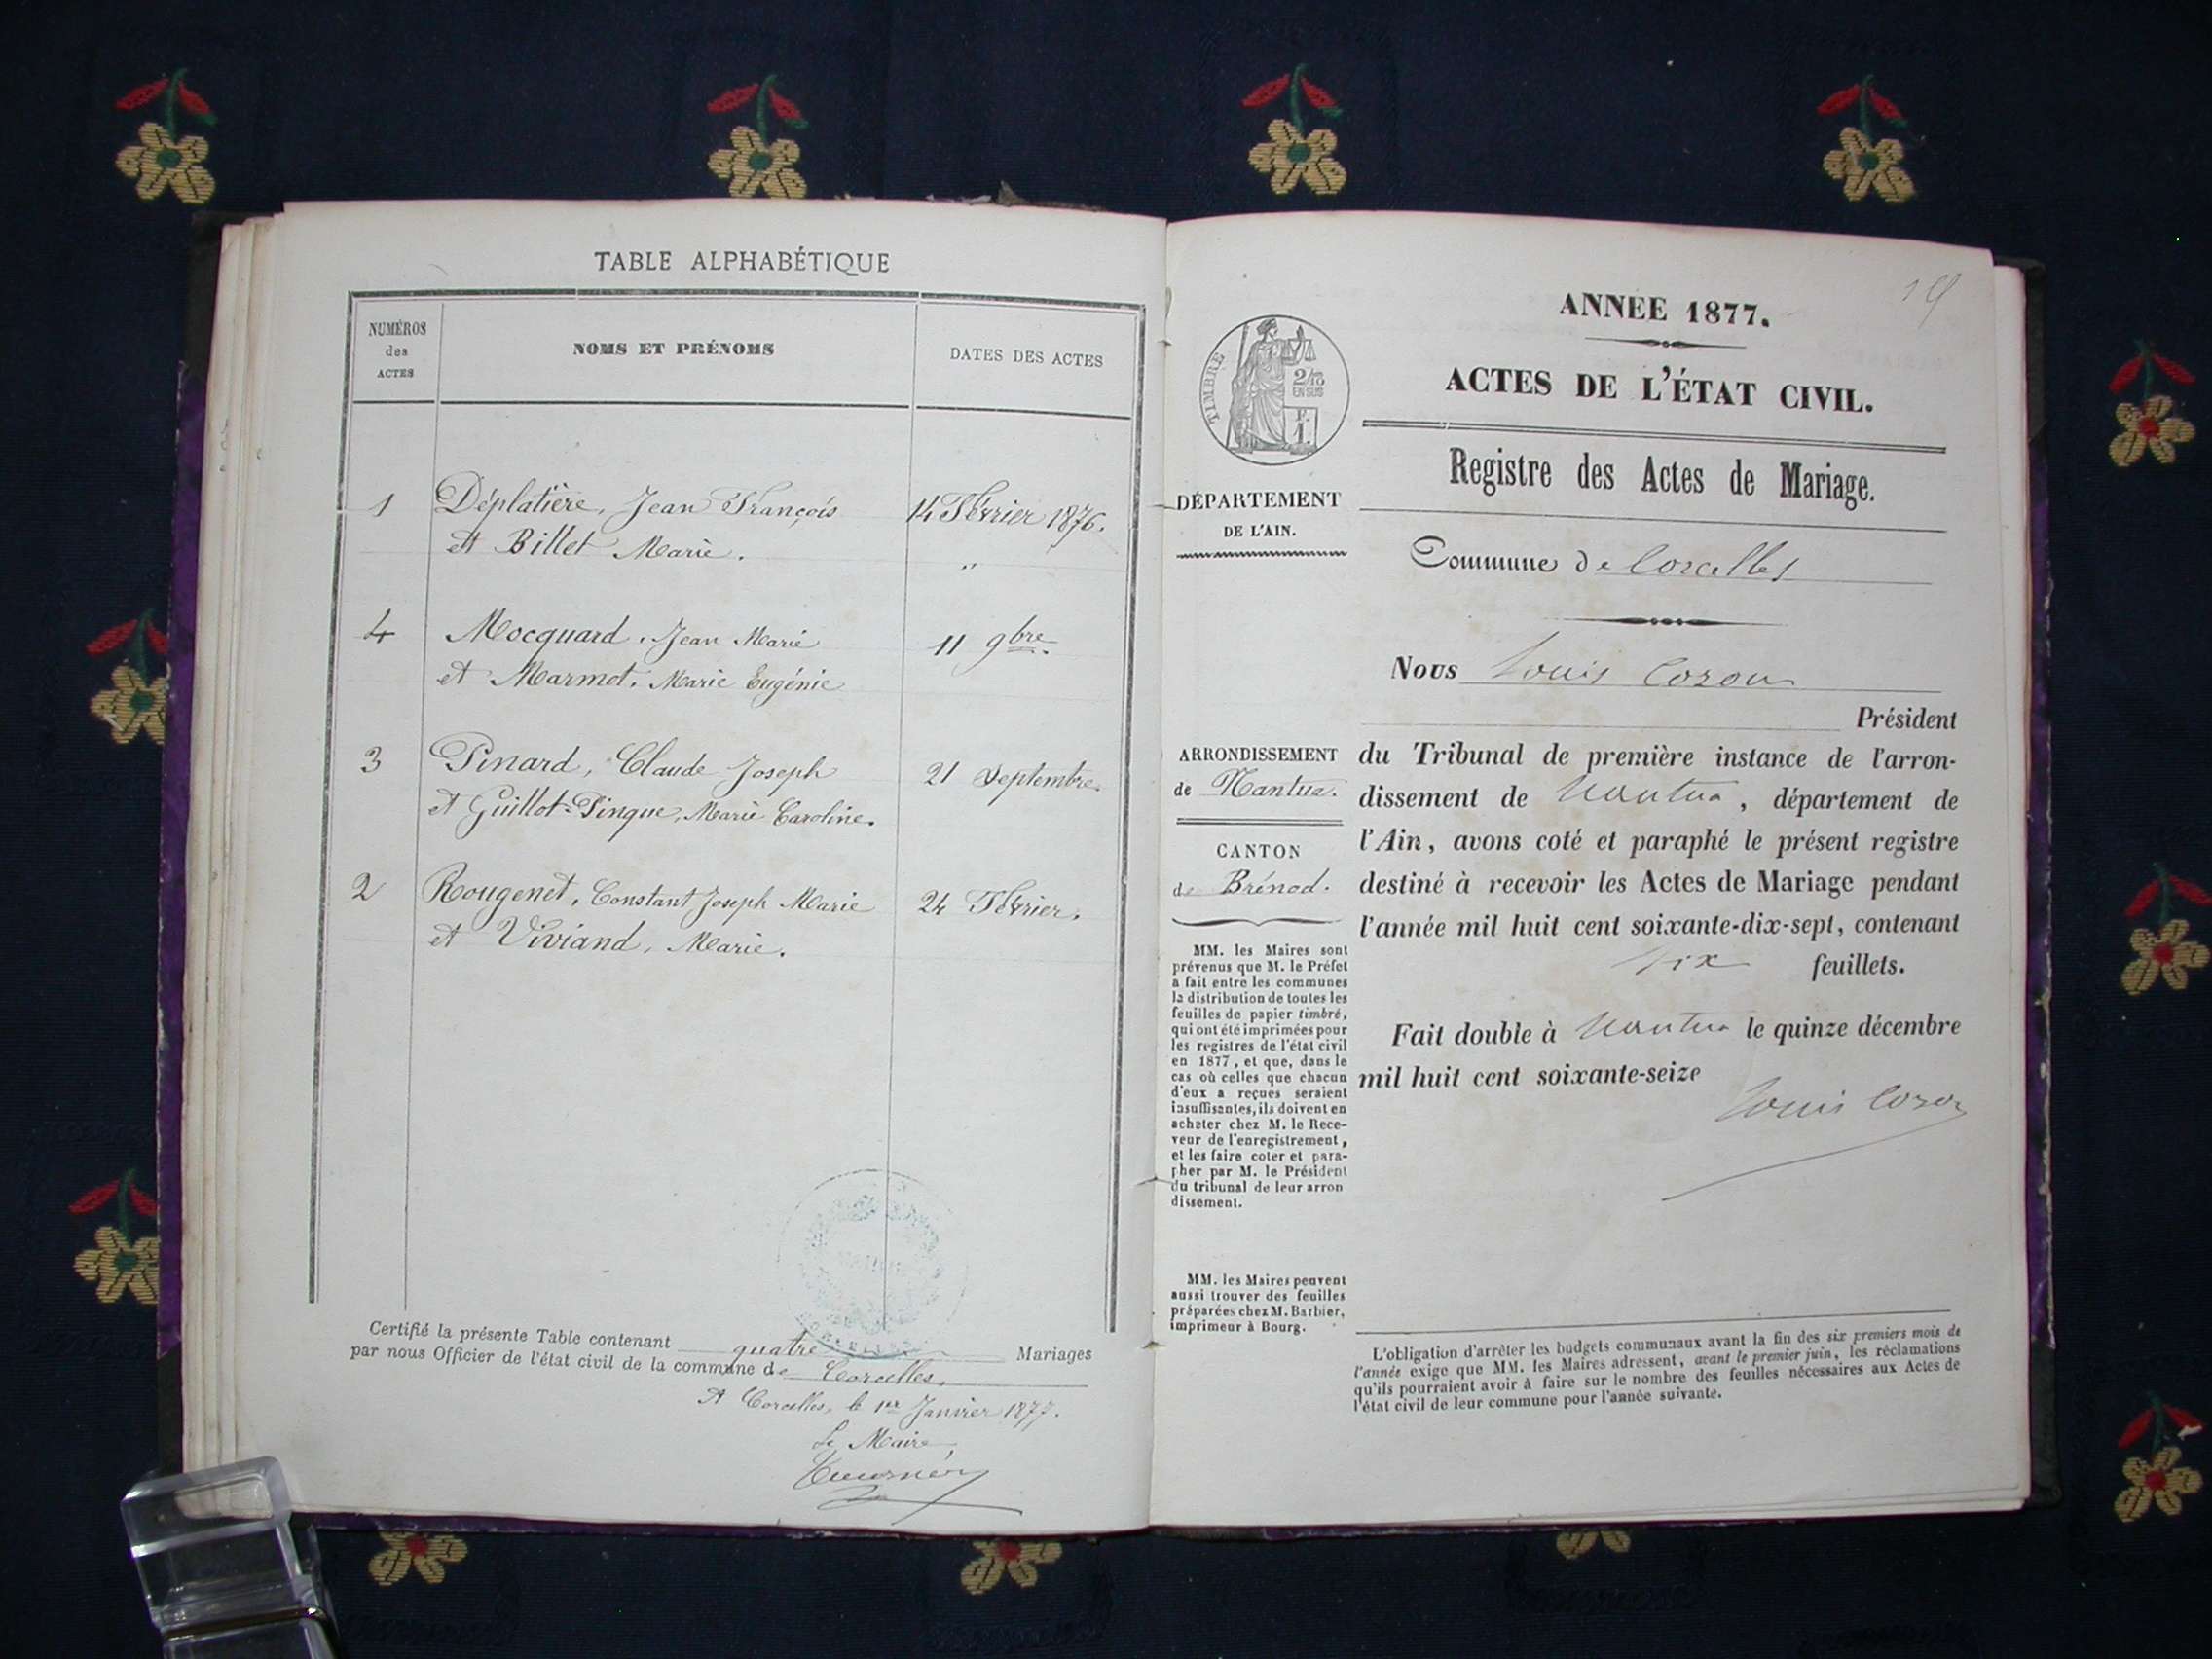 TABLE ALPHABÉTIQUE
NUMÉROS
des
ACTES
NOMS ET PRÉNOMS
DATES DES ACTES
1 Déplatière, Jean François 14 Février 1876.
et Billet Marie. "
4 Mocquard, Jean Marie 11 9bre.
et Marmot, Marie Eugénie
3 Pinard, Claude Joseph 21 Septembre.
et Guillot-Pingue, Marie Caroline.
2 Rougenet, Constant Joseph Marie 24 Février.
et Viviand, Marie.
Certifié la présente Table contenant quatre Mariages
par nous Officier de l'état civil de la commune de Corcelles.
A Corcelles, le 1er Janvier 1877.
Le Maire,
19
ANNÉE 1877.
TIMBRE
2/10
EN SUS
F.
1.
ACTES DE L'ÉTAT CIVIL.
Registre des Actes de Mariage.
DÉPARTEMENT
DE L'AIN.
Commune de Corcelles
Nous Louis Cozon
Président
du Tribunal de première instance de l'arron-
dissement de Nantua, département de
l'Ain, avons coté et paraphé le présent registre
destiné à recevoir les Actes de Mariage pendant
l'année mil huit cent soixante-dix-sept, contenant
six feuillets.
Fait double à Nantua le quinze décembre
mil huit cent soixante-seize
Louis Cozon
ARRONDISSEMENT
de Nantua.
CANTON
de Brénod.
MM. les Maires sont
prévenus que M. le Préfet
a fait entre les communes
la distribution de toutes les
feuilles de papier timbré,
qui ont été imprimées pour
les registres de l'état civil
en 1877, et que, dans le
cas où celles que chacun
d'eux a reçues seraient
insuffisantes, ils doivent en
acheter chez M. le Rece-
veur de l'enregistrement,
et les faire coter et para-
pher par M. le Président
du tribunal de leur arron
dissement.
MM. les Maires peuvent
aussi trouver des feuilles
préparées chez M. Barbier,
imprimeur à Bourg.
L'obligation d'arrêter les budgets communaux avant la fin des six premiers mois de
l'année exige que MM. les Maires adressent, avant le premier juin, les réclamations
qu'ils pourraient avoir à faire sur le nombre des feuilles nécessaires aux Actes de
l'état civil de leur commune pour l'année suivante.